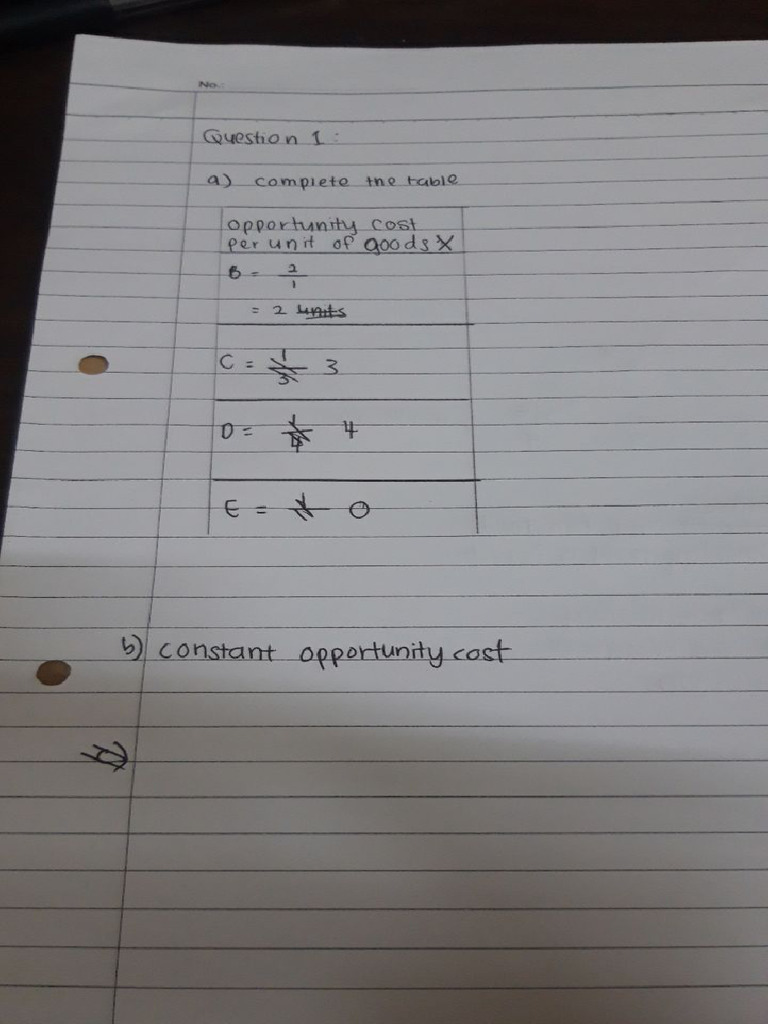 No.
Question 1:
a) complete the table
opportunity cost
per unit of goods X
B = 2/1
= 2 units
C = 1/3 3
D = 1/4 4
E = 0
b) constant opportunity cost